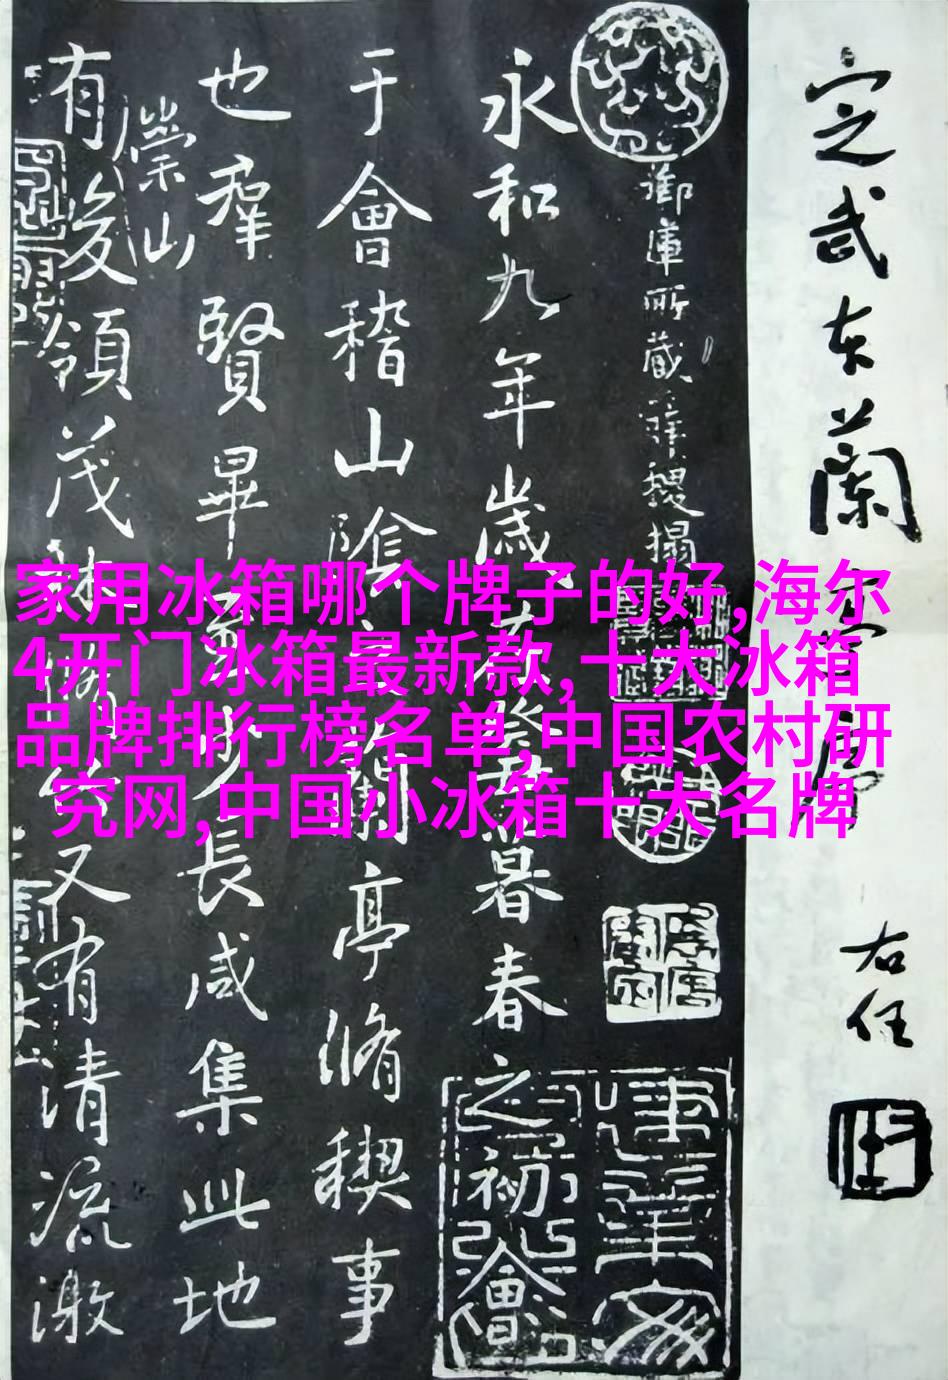 定武本蘭亭序
右任
御庫所藏薛稷搨
永和九年歲在癸丑暮春之初會
于會稽山陰之蘭亭脩稧事
也羣賢畢至少長咸集此地
崇山
有峻領茂林脩竹又有清流激
家用冰箱哪个牌子的好,海尔
4开门冰箱最新款,十大冰箱
品牌排行榜名单,中国农村研
究网,中国小冰箱十大名牌